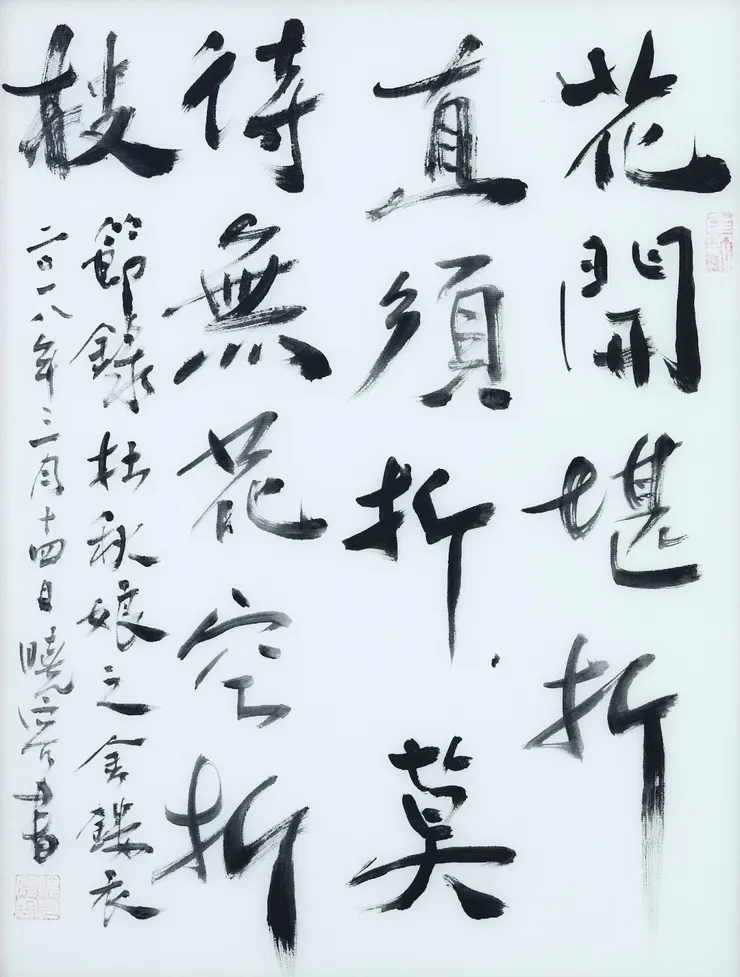 花開堪折
直須折莫
待無花空折
枝
節錄杜秋娘之金鏤衣
二〇一八年三月十四日曉書